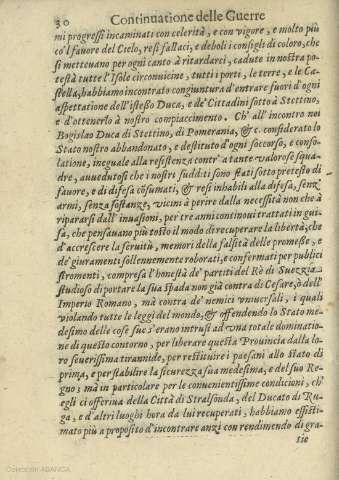 30 Continuatione delle Guerre
mi progressi incaminati con celerità, e con vigore, e molto più
co'l fauore del Cielo, resi fallaci, e deboli i consigli di coloro, che
si metteuano per ogni canto à ritardarci, cadute in nostra po-
testà tutte l'Isole circonuicine, tutti i porti, le terre, e le Ca-
stella, habbiamo incontrato congiuntura d'entrare fuori d'ogni
aspettatione dell'istesso Duca, e de' Cittadini sotto à Stettino,
e d'ottenerlo à nostro compiaccimento. Ch' all' incontro noi
Bogislao Duca di Stettino, di Pomerania, & c. considerato lo
Stato nostro abbandonato, e destituto d'ogni soccorso, e conso-
latione, ineguale alla resistenza contr' a tante valorose squa-
dre, auuedutosi che i nostri sudditi sono stati sotto pretesto di
fauore, e di difesa cõsumati, & resi inhabili alla difesa, senz'
armi, senza sostanze, vicini à perire dalla necessità non che à
ripararsi dall' inuasioni, per tre anni continoui trattati in gui-
sa, che pensauano più tosto il modo di recuperare la libertà, che
d'accrescere la seruitù, memori della falsità delle promesse, e
de' giuramenti sollennemente roborati, e confermati per publici
stromenti, compresa l'honestà de' partiti del Rè di Suezzia
studioso di portare la sua spada non già contra di Cesare, ò dell'
Imperio Romano, mà contra de' nemici vniuersali, i quali
violando tutte le leggi del mondo, & offendendo lo Stato me-
desimo delle cose sue s'erano intrusi ad vna totale dominatio-
ne di questo contorno, per liberare questa Prouincia dalla lo-
ro seuerissima tirannide, per restituire i paesani allo stato di
prima, e per stabilire la sicurezza sua medesima, e del suo Re-
gno; mà in particolare per le conuenientissime condicioni, ch'
egli ci offeriua della Città di Stralsonda, del Ducato di Ru-
ga, e d'altri luoghi hora da lui recuperati, habbiamo essisti-
mato più a proposito d'incontrare anzi con rendimento di gra-
tie
Colección ABANCA